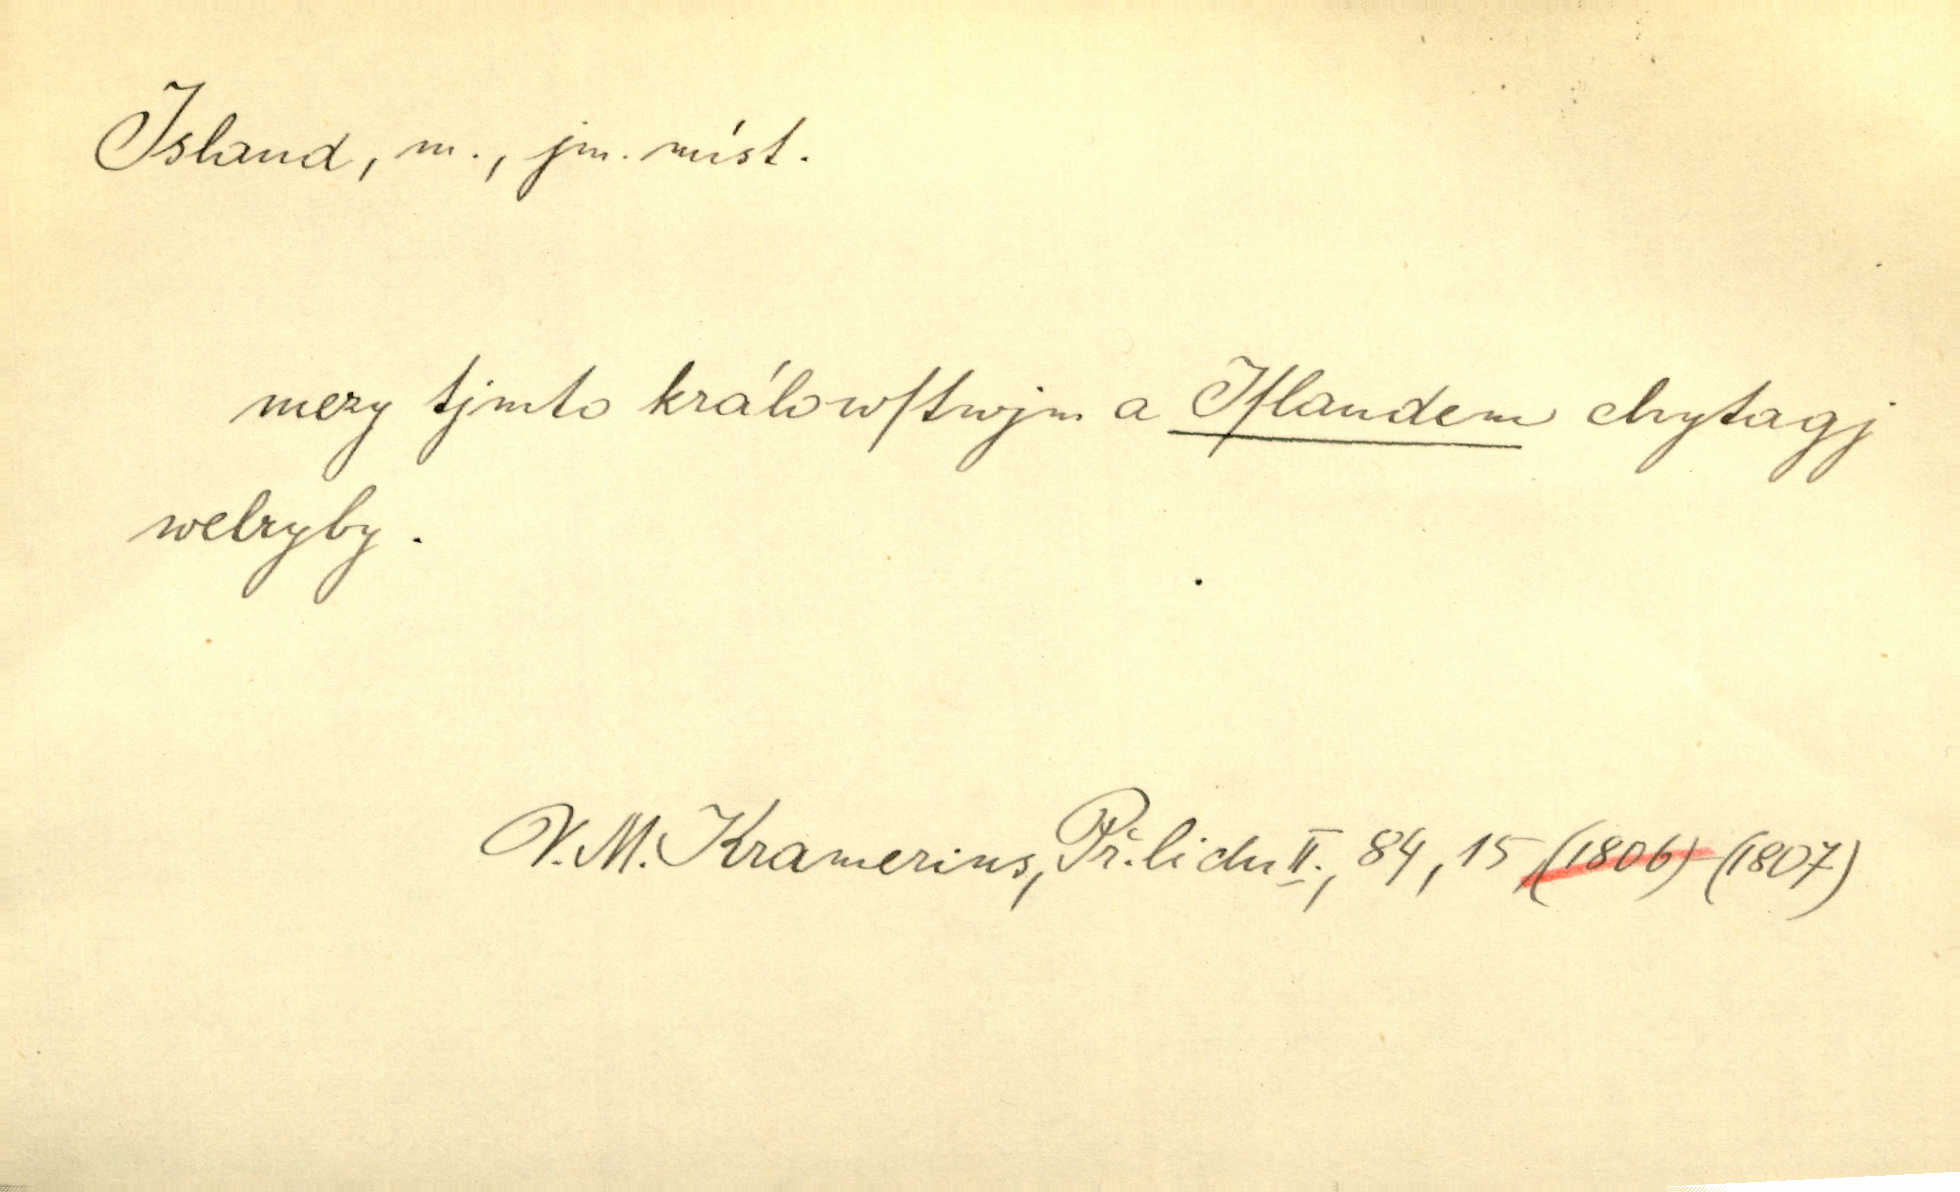 Island, m., jm. míst.
mezy tjmto králowſtwjm a Iſlandem chytagj
welryby.
V. M. Kramerius, Př. lidu II., 84, 15, (1806) - (1807)